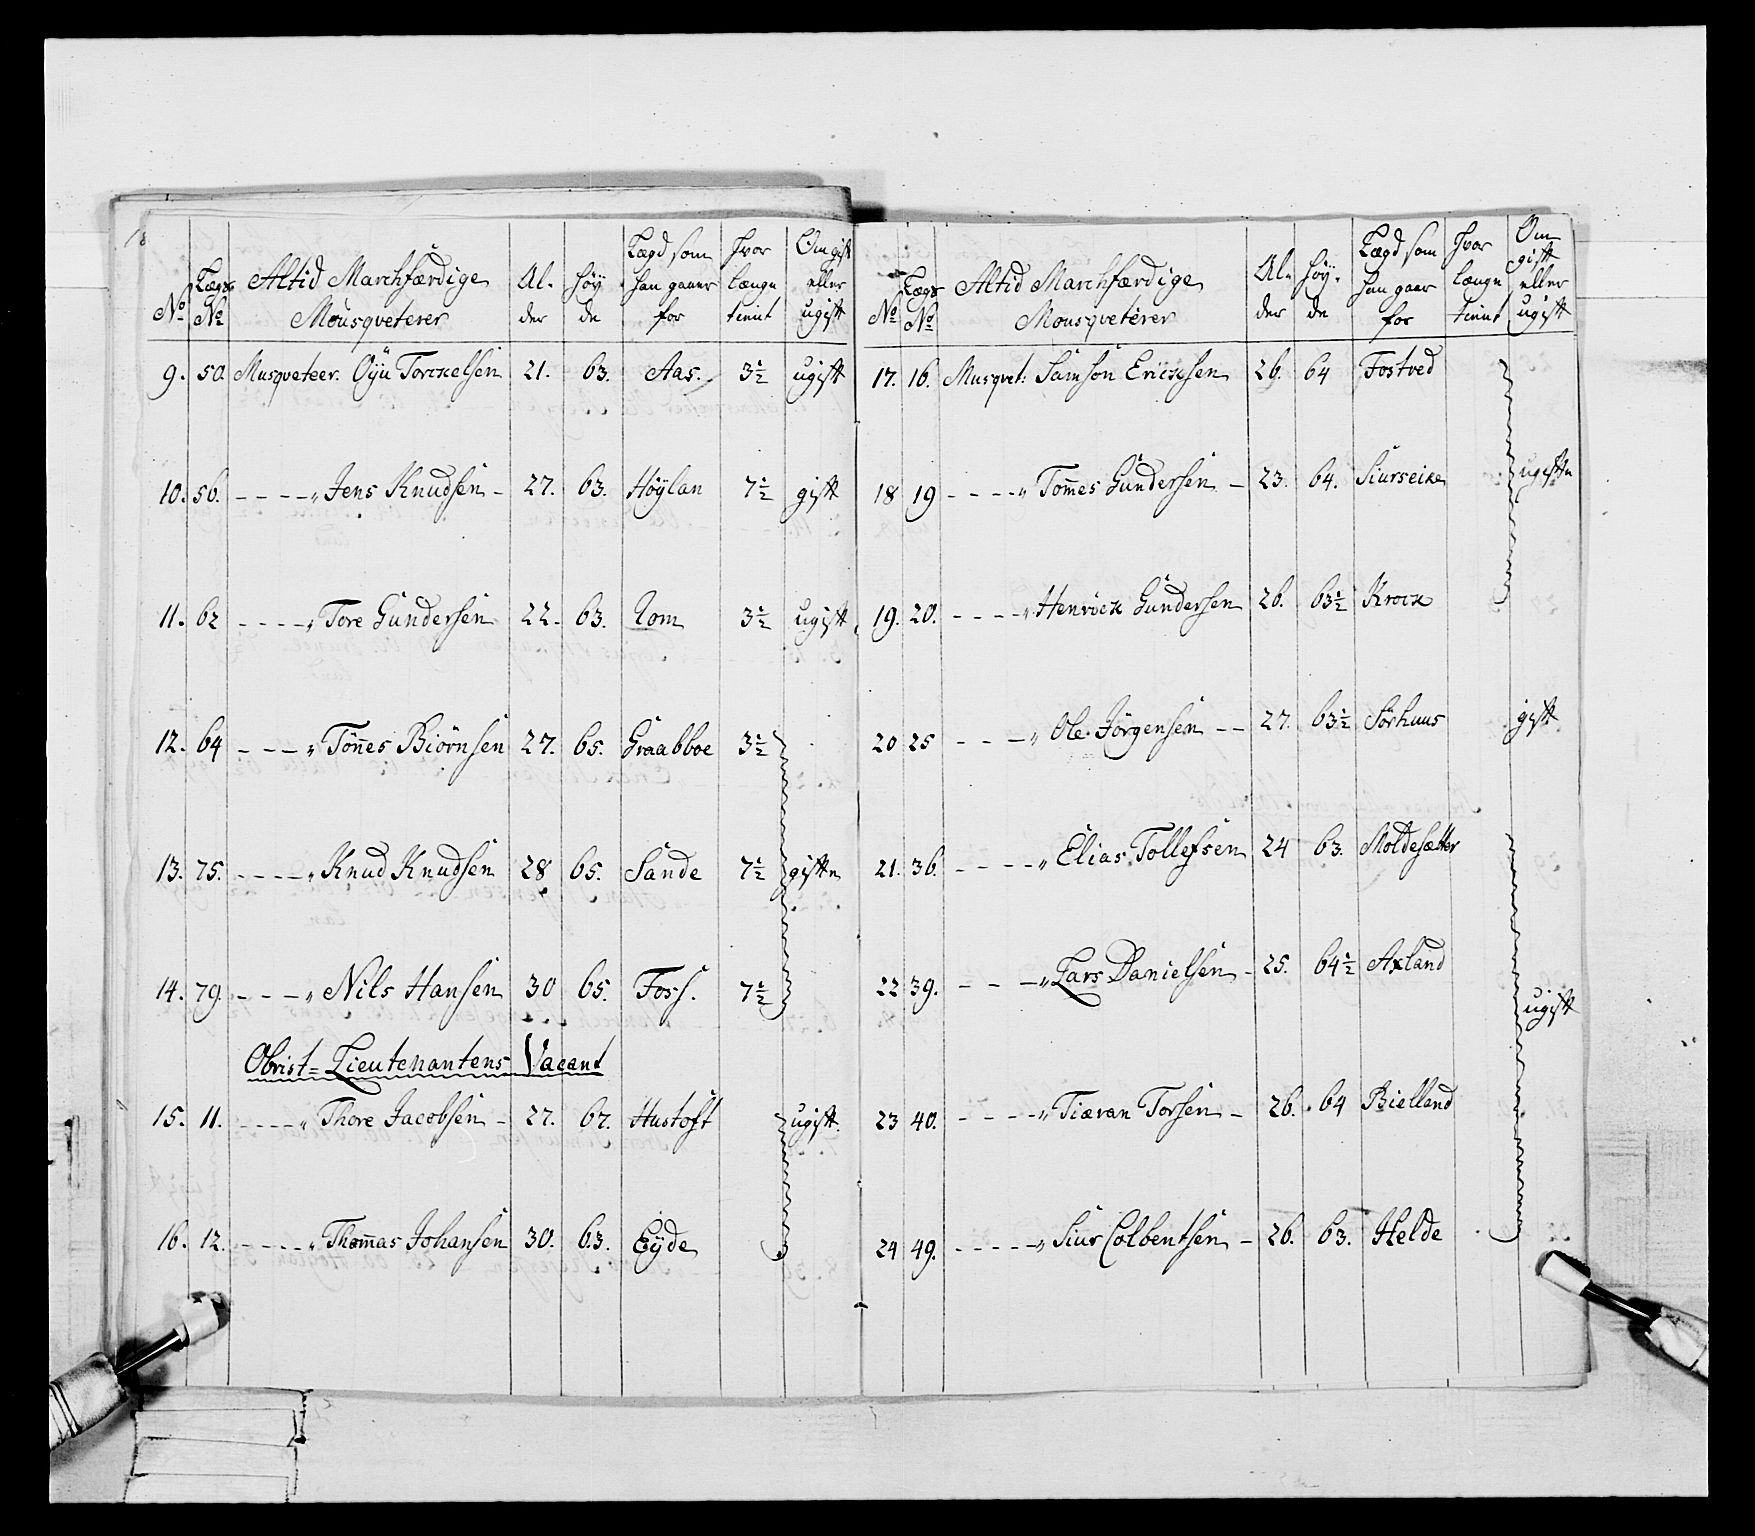 No | Lægs No | Altid Marchfærdige Mousqveterer | Al- der | Höy de | Lægd som han gaaer for | Hvor længe tient | Om gift eller ugift
9. | 50. | Musqveteer. Oÿu Torckelsen | 21. | 63. | Aas. | 3½ | ugift
10. | 56. | - - - - „ Jens Knudsen - | 27. | 63. | Höÿlan | 7½ | gift
11. | 62 | - - - - „ Tore Gundersen | 22. | 63. | Lom | 3½ | ugift
12. | 64 | - - - „ Tönes Biörnsen | 27. | 65. | Graabboe | 3½
13. | 75. | - - - - „ Knud Knudsen | 28 | 65. | Sande | 7½ | gifte
14. | 79. | - - - „ Nils Hansen | 30 | 65. | Foss. | 7½
Obrist=Lieutenantens Vacant
15. | 11. | - - - - „ Thore Jacobsen - | 27. | 67. | Hustoft | ugift.
16. | 12. | - - - - „ Thomas Johansen | 30. | 63. | Eÿde
No | Lægs No | Altid Marchfærdige Mousqveterer | Al- der | Höÿ- de | Lægd som han gaar for | Hvor længe tient | Om gift eller ugift
17. | 16. | Musqvet: Samson Ericksen | 26. | 64 | Fostved
18 | 19 | - - - - „ Tomes Gundersen - | 23. | 64. | Siurseike | ugifte
19. | 20. | - - - - „ Henrick Gundersen | 26. | 63½ | Krock
20 | 25 | - - - „ Ole Jörgensen - - | 27. | 63½ | Sörhuus | gift
21. | 36. | - - - - „ Elias Tollefsen | 24 | 63. | Moldesætter
22 | 39. | - - - „ Lars Danielsen - | 25. | 64½ | Axland | ugift
23 | 40. | - - - - „ Tiæran Torsen - | 26. | 64 | Bielland
24 | 49. | - - - - - „ Siur Colbentsen - | 26. | 63. | Helde